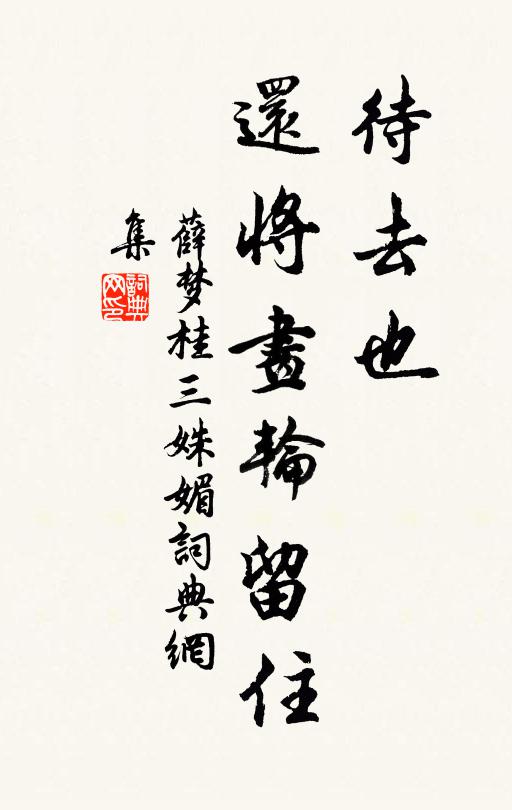 待去也
還將畫輪留住
薛梦桂三姝媚詞典網
集
詞典
网印